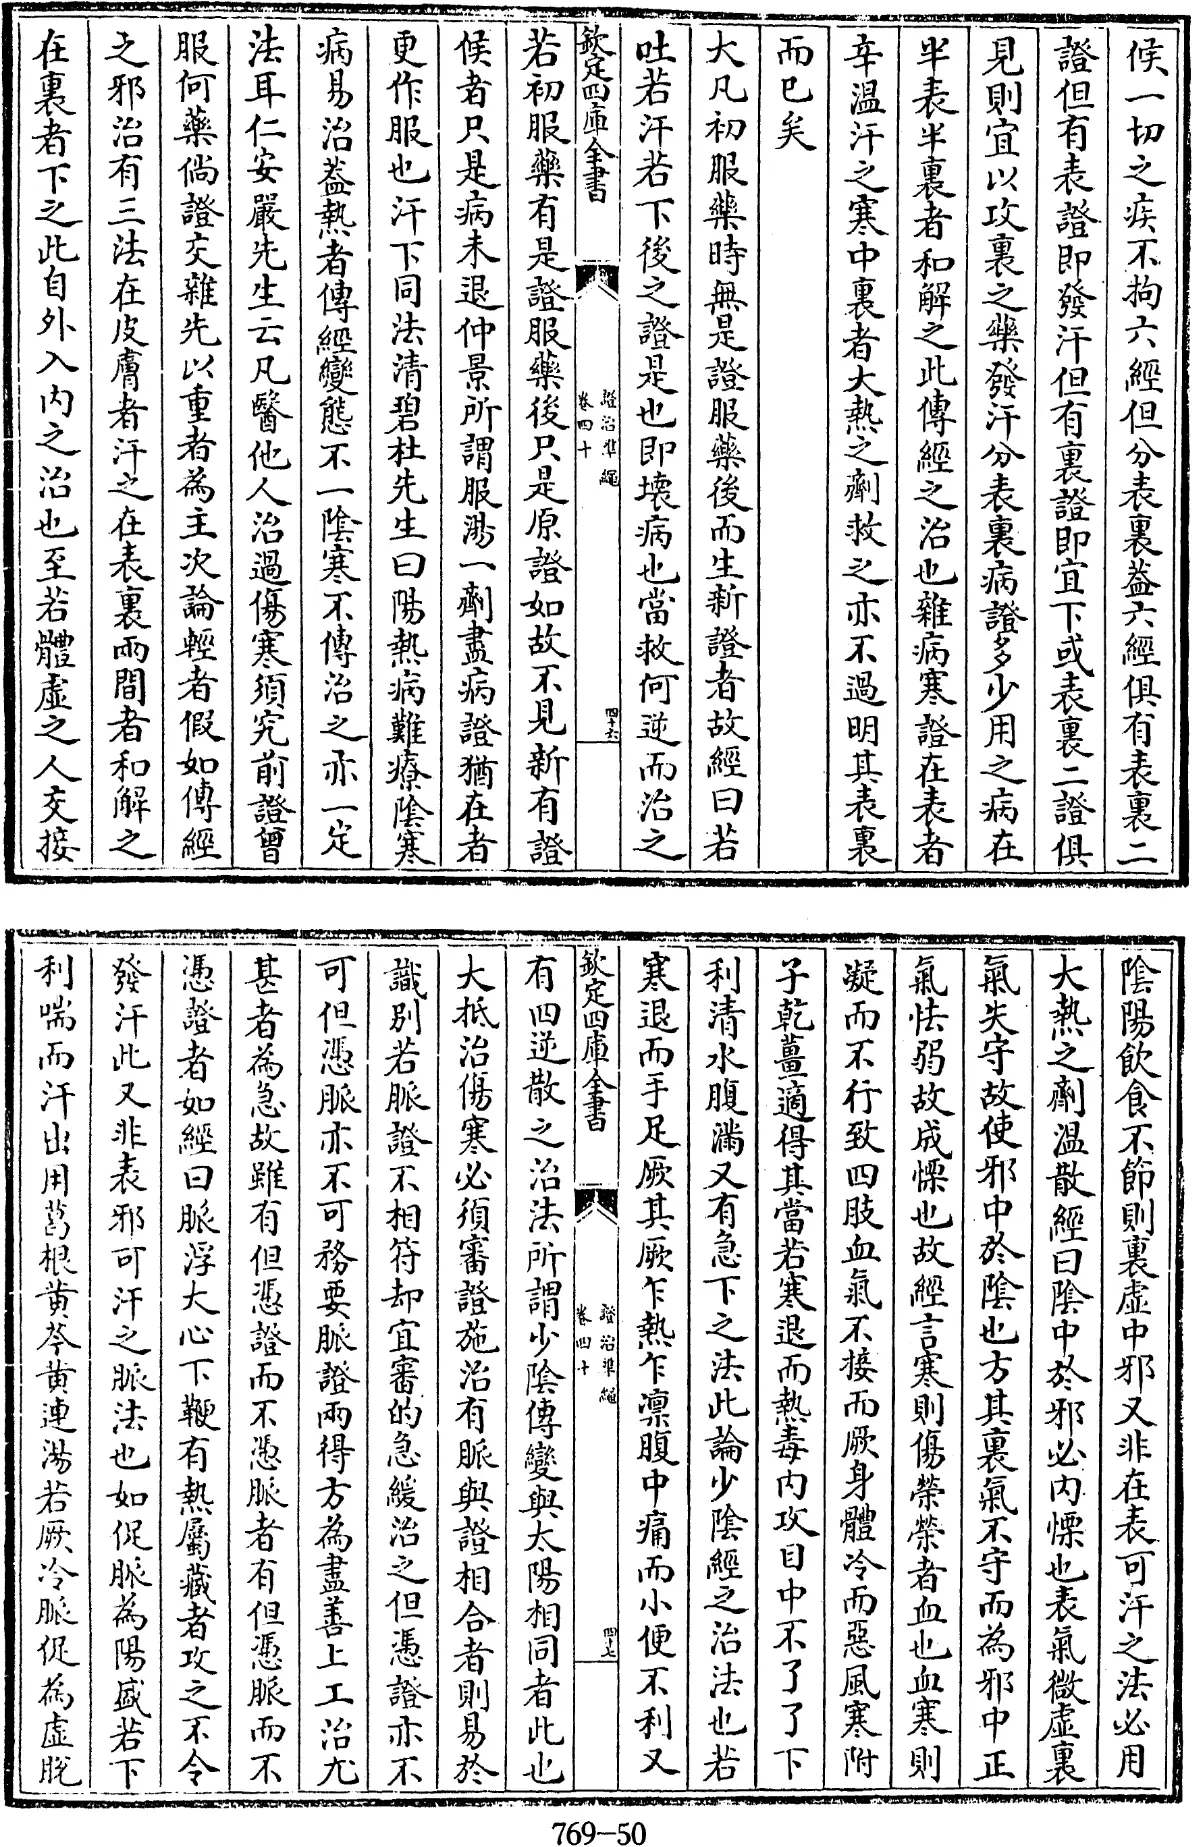 候一切之疾不拘六經但分表裏葢六經俱有表裏二
證但有表證即發汗但有裏證即宜下或表裏二證俱
見則宜以攻裏之藥發汗分表裏病證多少用之病在
半表半裏者和解之此傳經之治也雜病寒證在表者
辛温汗之寒中裏者大熱之劑救之亦不過明其表裏
而已矣
大凡初服藥時無是證服藥後而生新證者故經曰若
吐若汗若下後之證是也即壊病也當救何逆而治之
欽定四庫全書
證治準繩
卷四十
四十六
若初服藥有是證服藥後只是原證如故不見新有證
候者只是病未退仲景所謂服湯一劑盡病證猶在者
更作服也汗下同法清碧杜先生曰陽熱病難療陰寒
病易治葢熱者傳經變態不一陰寒不傳治之亦一定
法耳仁安嚴先生云凡醫他人治過傷寒須究前證曾
服何藥倘證交雜先以重者為主次論輕者假如傳經
之邪治有三法在皮膚者汗之在表裏兩間者和解之
在裏者下之此自外入内之治也至若體虚之人交接
陰陽飲食不節則裏虚中邪又非在表可汗之法必用
大熱之劑温散經曰陰中於邪必内慄也表氣微虚裏
氣失守故使邪中於陰也方其裏氣不守而為邪中正
氣怯弱故成慄也故經言寒則傷榮榮者血也血寒則
凝而不行致四肢血氣不接而厥身體冷而惡風寒附
子乾薑適得其當若寒退而熱毒内攻目中不了了下
利清水腹滿又有急下之法此論少陰經之治法也若
寒退而手足厥其厥乍熱乍凛腹中痛而小便不利又
欽定四庫全書
證治準繩
卷四十
四十七
有四逆散之治法所謂少陰傳變與太陽相同者此也
大抵治傷寒必須審證施治有脈與證相合者則易於
識別若脈證不相符却宜審的急緩治之但憑證亦不
可但憑脈亦不可務要脈證兩得方為盡善上工治尤
甚者為急故雖有但憑證而不憑脈者有但憑脈而不
憑證者如經曰脈浮大心下鞕有熱屬藏者攻之不令
發汗此又非表邪可汗之脈法也如促脈為陽盛若下
利喘而汗出用葛根黄芩黄連湯若厥冷脈促為虚脱
769-50